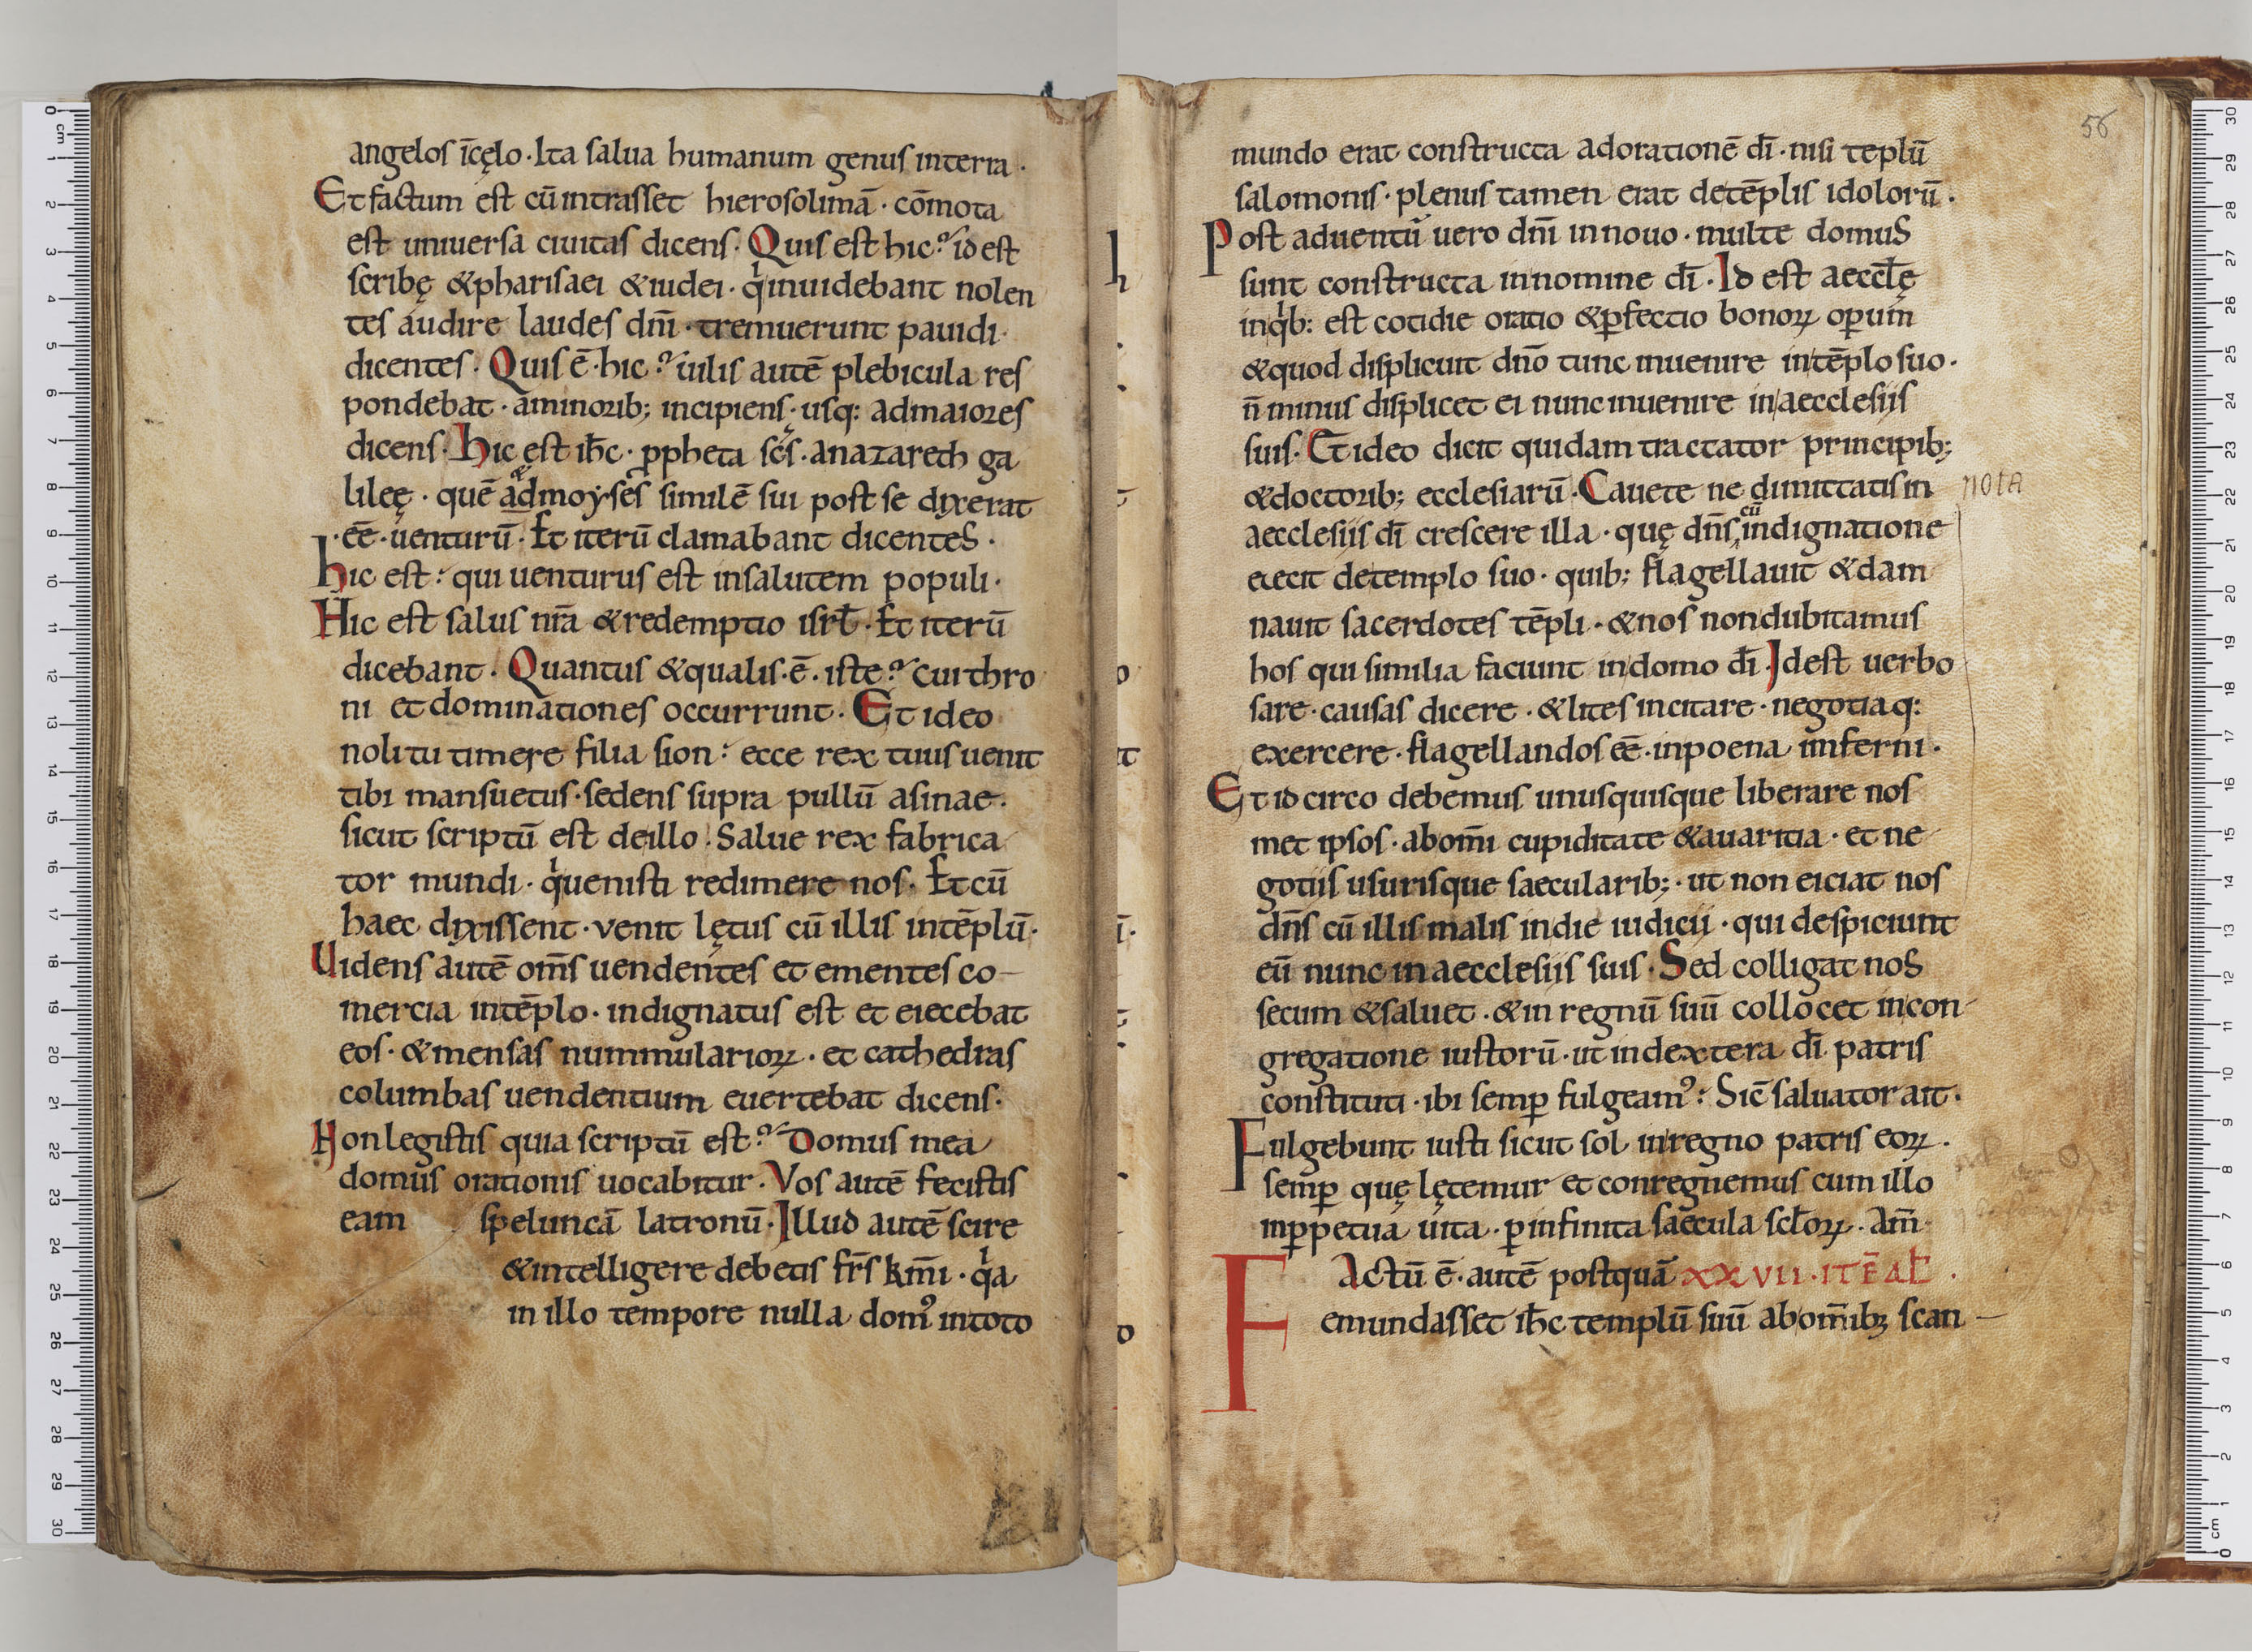 angelos īcęlo · Ita salua humanum genus interra ·
Et factum est cū intrasset hierosolimā · cōmota
est uniuersa ciuitas dicens · Quis est hic? id est
scribę & pharisaei & iudei · qͥ inuidebant nolen
tes audire laudes dn̄i · tremuerunt pauidi ·
dicentes · Quis ē · hic? iulis autē plebicula res
pondebat · aminorib; incipiens · usq: admaiores
dicens · Hic est ih̄c · ꝓpheta sc̄s · anazareth ga
lileę · quē ad moyses similē sui post se dixerat
· eē · uenturū · Et iterū clamabant dicentes ·
hic est: qui uenturus est insalutem populi ·
Hic est salus nr̄a & redemptio isrł · Et iterū
dicebant · Quantus & qualis · ē · iste? cui thro
ni et dominationes occurrunt · Et ideo
noli tu timere filia sion: ecce rex tuus uenit
tibi mansuetus · sedens supra pullū asinae ·
sicut scriptū est deillo · Salue rex fabrica
tor mundi · qͥ uenisti redimere nos · Et cū
haec dixissent · venit lętus cū illis intēplū ·
Uidens autē om̄s uendentes et ementes co-
mercia intēplo · indignatus est et eiecebat
eos · & mensas nummularioꝝ · et cathedras
columbas uendentium euertebat dicens ·
Non legistis quia scriptū est? Domus mea
domus orationis uocabitur · Vos autē fecistis
eam speluncā latronū · Illud autē scire
& intelligere debetis fr̄s km̄i · qͥa
in illo tempore nulla domꝰ intoto
56
mundo erat constructa adorationē dī · nisi teplū
salomonis · plenus tamen erat detēplis idolorū ·
Post aduentū uero dn̄i innouo · multe domus
sunt constructa innomine dī · Id est aeccłę
inqͥb: est cotidie oratio & ꝑfectio bonoꝝ oꝑum
& quod displicuit dn̄o tunc inuenire intēplo suo ·
n̄ minus displicet ei nunc inuenire in aecclesiis
suis · Et ideo dicit quidam tractator principib;
& doctorib; ecclesiarū · Cauete ne dimittatis in
nota
aecclesiis dī crescere illa · quę dn̄s cū indignatione
eiecit detemplo suo · quib; flagellauit & dam
nauit sacerdotes tēpli · & nos nondubitamus
hos qui similia faciunt indomo dī · Idest uerbo
sare · causas dicere · & lites incitare · negotiaq:
exercere · flagellandos eē · inpoena imferni ·
Et id circo debemus unusquisque liberare nos
met ipsos · abom̄i cupiditate & auaritia · et ne
gotiis usurisque saecularib; · ut non eiciat nos
dn̄s cū illis malis indie iudicii · qui despiciunt
eū nunc in aecclesiis suis · Sed colligat nos
secum & saluet · & in regnū suū collocet incon-
gregatione iustorū · ut indextera dī patris
constituti · ibi semꝑ fulgeamꝰ: Sic̄ saluator ait ·
Fulgebunt iusti sicut sol inregno patris eoꝝ ·
semꝑ quę lętemur et conregnemus cum illo
inꝑpetua uita · ꝑ infinita saecula scłoꝝ · Am̄
FActū ē · autē postquā xxvii · ITĒ Ał ·
emundasset ih̄c templū suū abom̄ibꝫ scan-